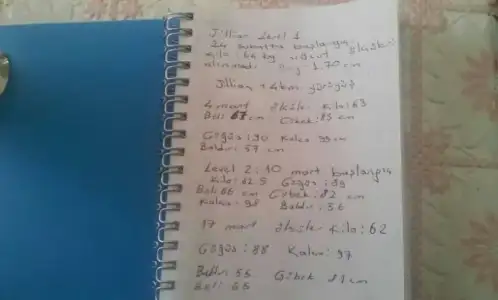 Jillian Level 1
24 başlangıç
kilo: 64 kg vücut ölçüleri
alınmadı Boy 1.70 cm
Jillian + 4km yürüyüş
4 mart ölçüler kilo: 63
Bel: cm Göbek: 85 cm
Göğüs: 90 Kalça 99 cm
Baldır: 57 cm
Level 2: 10 mart başlangıç
Kilo: 62.5 Göğüs: 89
Bel: 66 cm Göbek: 82 cm
Kalça: 98 Baldır: 56
17 mart ölçüler kilo: 62
Göğüs: 88 Kalça: 97
Baldır 55 Göbek 81 cm
Bel: 65